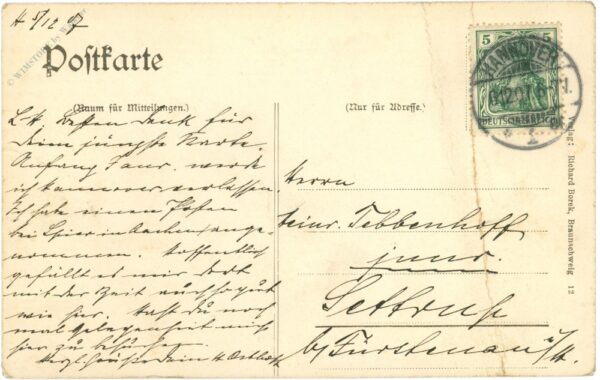 H 5/12 07
Postkarte
(Raum für Mitteilungen.)
(Nur für Adresse.)
5
DEUTSCHES REICH
HANNOVER
L. H. Besten Dank für
Deine jüngste Karte.
Anfang Janr. werde
ich Hannover verlassen.
Ich habe einen Posten
bei
nommen. Hoffentlich
gefällt es mir dort
mit der Zeit auch so gut
wie hier. Hast du noch
mal Gelegenheit mich
hier zu besuchen.
Herzl. Grüße dein H
Herrn
Heinr. Tebbenhoff
junr.
Settrup
b/ Fürstenau i/H.
Verlag: Richard Borek, Braunschweig 12
© WIMSTORE by